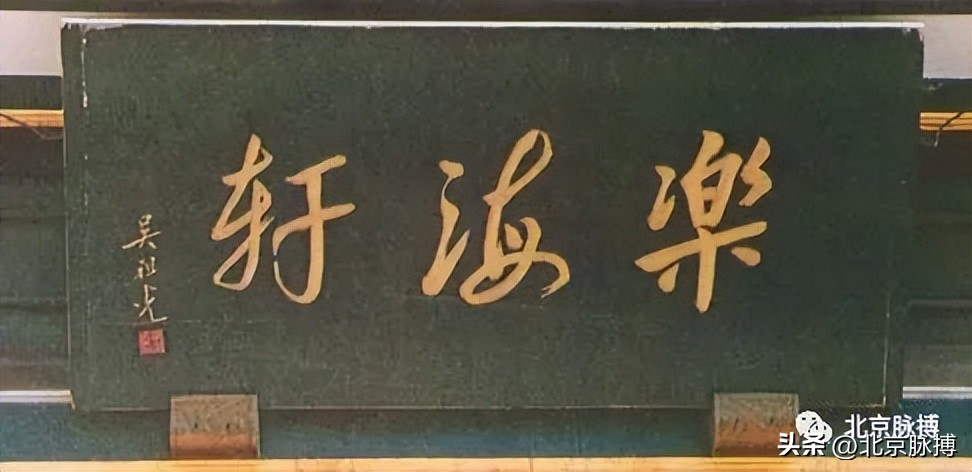 楽海軒
吴祖光
北京脉搏
头条 @北京脉搏